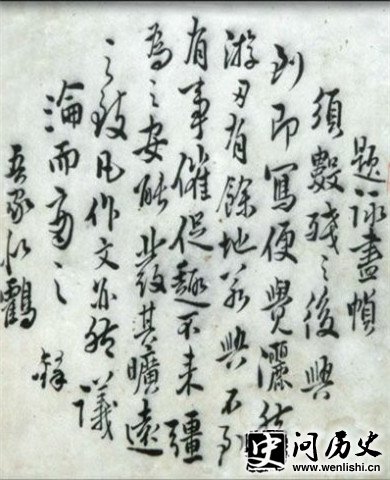 題
須數殘之後興
到即寫便覺灑然
游刃有餘地若興不到
有事催促趣不來彊
為之安能其曠遠
之致凡作文亦然議
而之
鐸
吾家鶴
史 问历史
www.wenlishi.cn